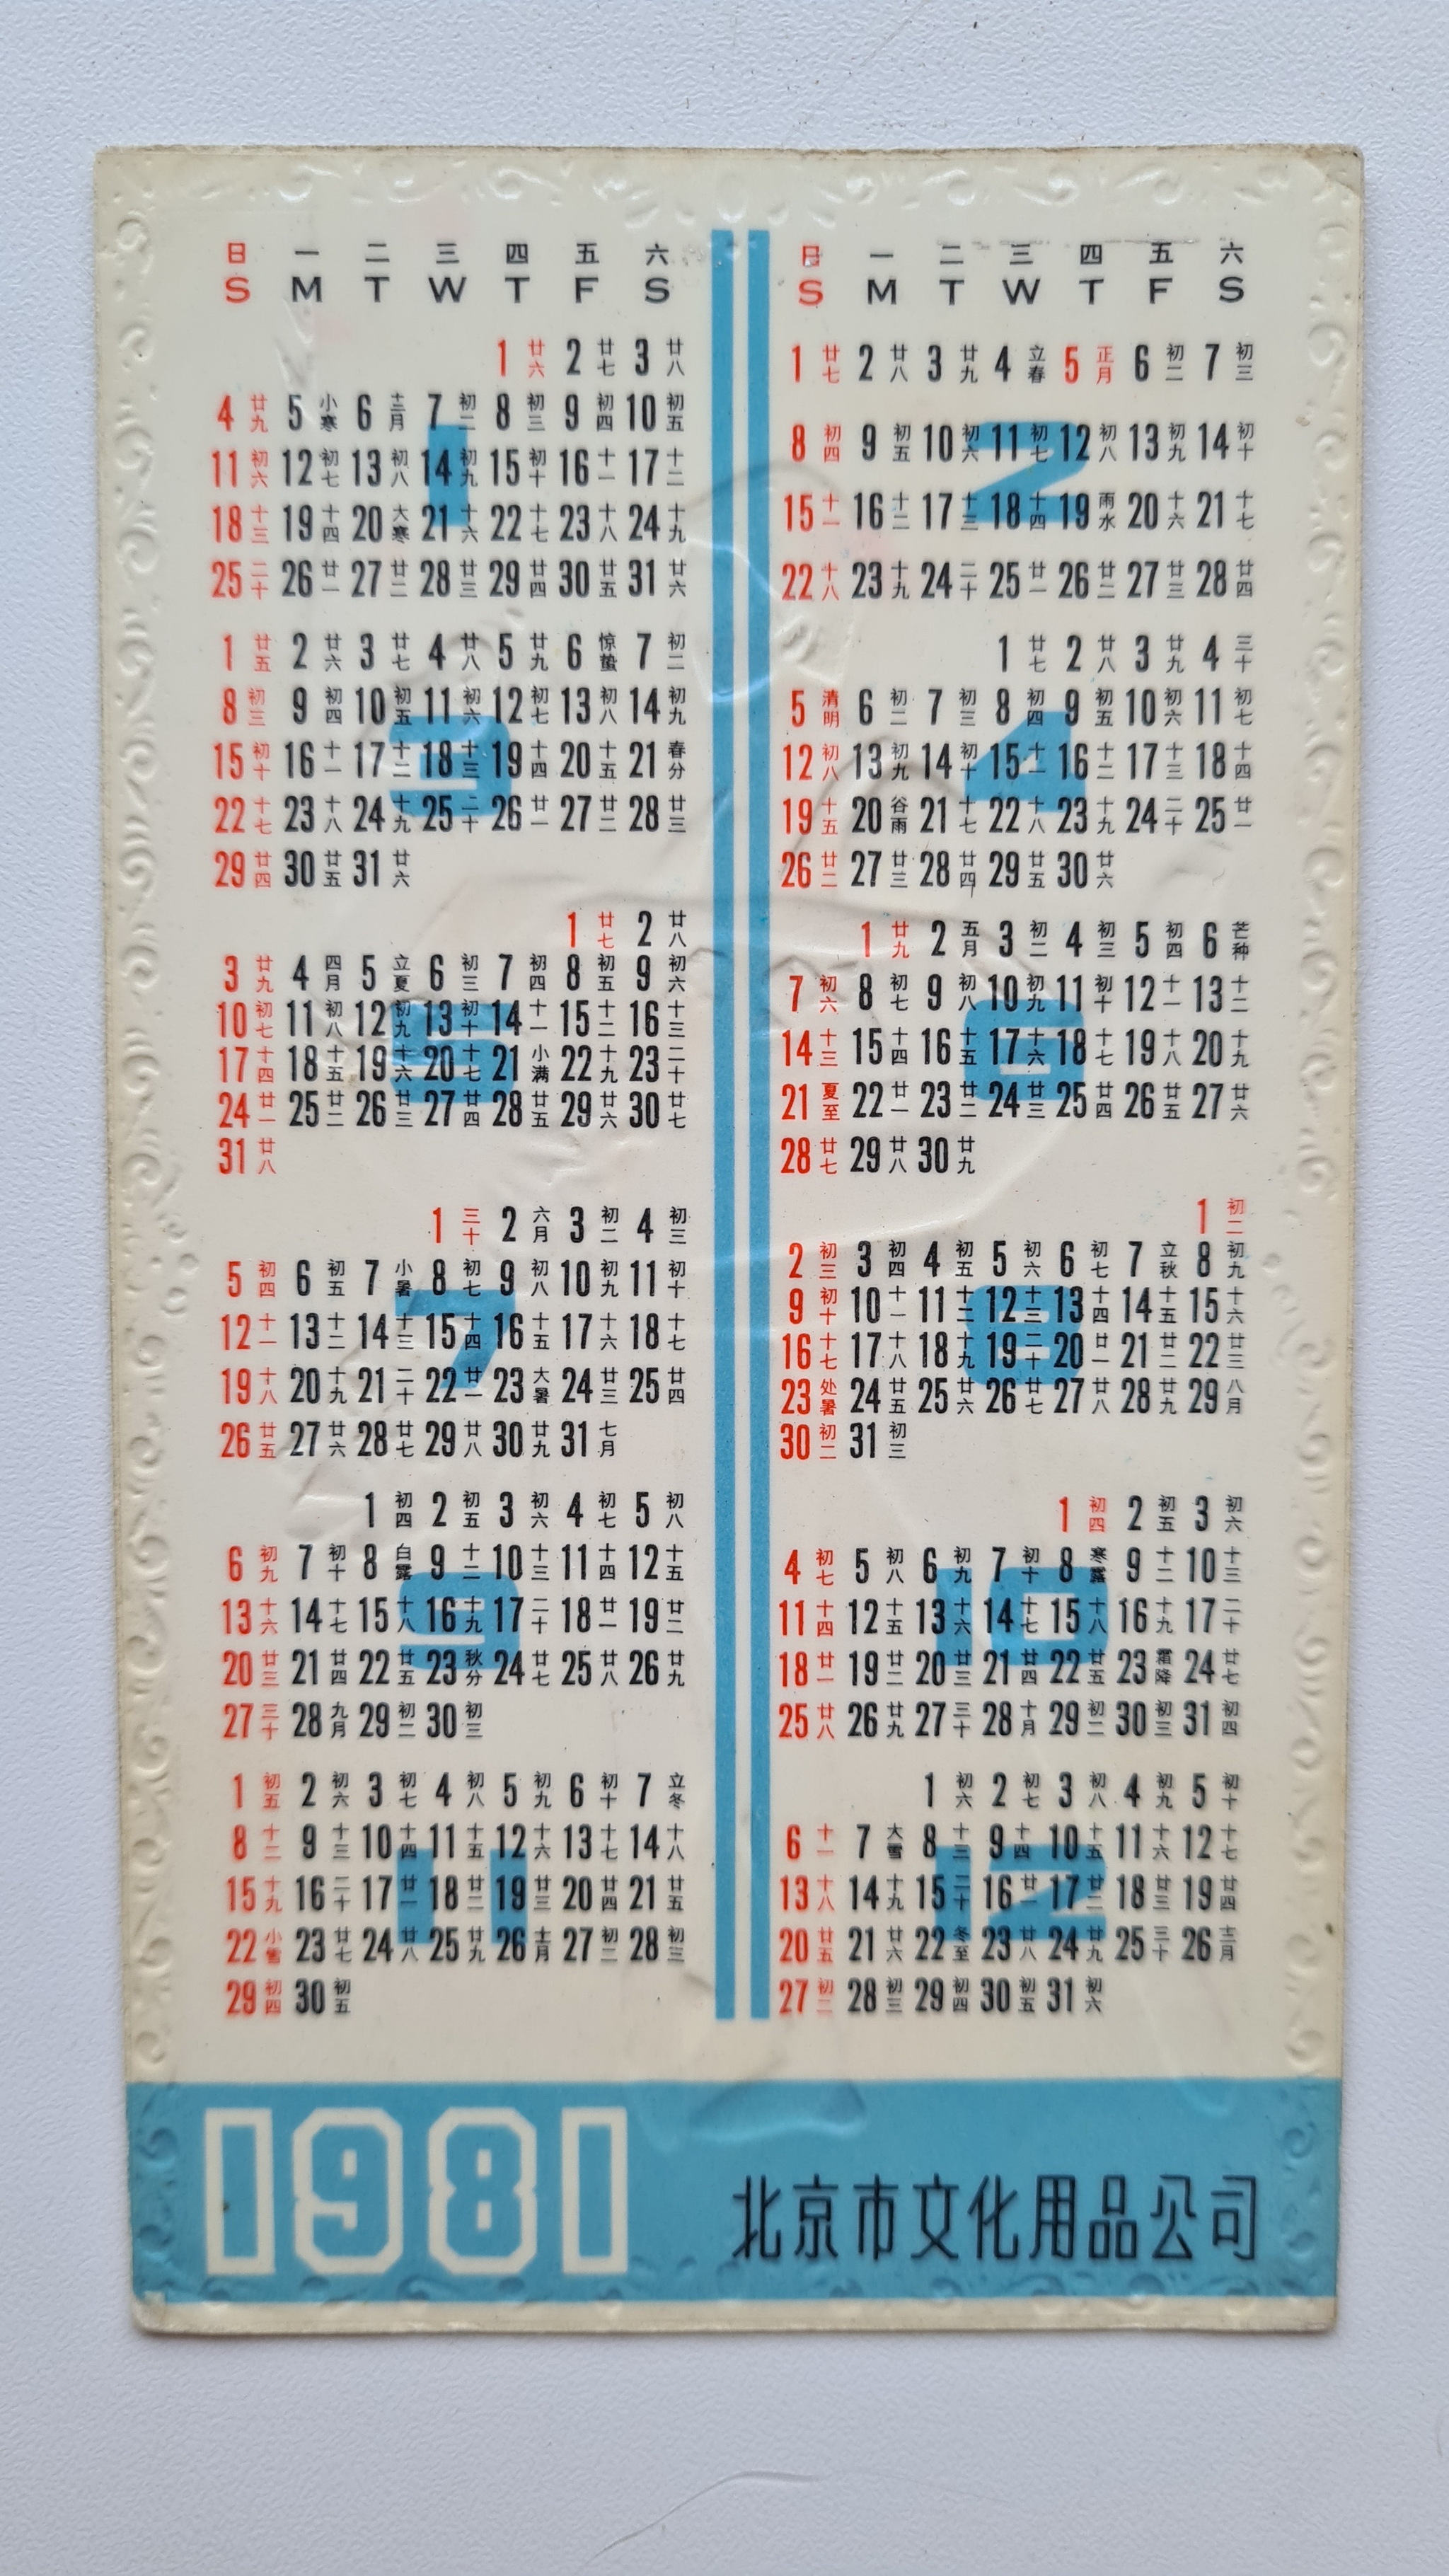 日 一 二 三 四 五 六
S M T W T F S
日 一 二 三 四 五 六
S M T W T F S
1
1 廿六 2 廿七 3 廿八
4 廿九 5 小寒 6 十二月 7 初二 8 初三 9 初四 10 初五
11 初六 12 初七 13 初八 14 初九 15 初十 16 十一 17 十二
18 十三 19 十四 20 大寒 21 十六 22 十七 23 十八 24 十九
25 二十 26 廿一 27 廿二 28 廿三 29 廿四 30 廿五 31 廿六
2
1 廿七 2 廿八 3 廿九 4 立春 5 正月 6 初二 7 初三
8 初四 9 初五 10 初六 11 初七 12 初八 13 初九 14 初十
15 十一 16 十二 17 十三 18 十四 19 雨水 20 十六 21 十七
22 十八 23 十九 24 二十 25 廿一 26 廿二 27 廿三 28 廿四
3
1 廿五 2 廿六 3 廿七 4 廿八 5 廿九 6 惊蛰 7 初二
8 初三 9 初四 10 初五 11 初六 12 初七 13 初八 14 初九
15 初十 16 十一 17 十二 18 十三 19 十四 20 十五 21 春分
22 十七 23 十八 24 十九 25 二十 26 廿一 27 廿二 28 廿三
29 廿四 30 廿五 31 廿六
4
1 廿七 2 廿八 3 廿九 4 三十
5 清明 6 初二 7 初三 8 初四 9 初五 10 初六 11 初七
12 初八 13 初九 14 初十 15 十一 16 十二 17 十三 18 十四
19 十五 20 谷雨 21 十七 22 十八 23 十九 24 二十 25 廿一
26 廿二 27 廿三 28 廿四 29 廿五 30 廿六
5
1 廿七 2 廿八
3 廿九 4 四月 5 立夏 6 初三 7 初四 8 初五 9 初六
10 初七 11 初八 12 初九 13 初十 14 十一 15 十二 16 十三
17 十四 18 十五 19 十六 20 十七 21 小满 22 十九 23 二十
24 廿一 25 廿二 26 廿三 27 廿四 28 廿五 29 廿六 30 廿七
31 廿八
6
1 廿九 2 五月 3 初二 4 初三 5 初四 6 芒种
7 初六 8 初七 9 初八 10 初九 11 初十 12 十一 13 十二
14 十三 15 十四 16 十五 17 十六 18 十七 19 十八 20 十九
21 夏至 22 廿一 23 廿二 24 廿三 25 廿四 26 廿五 27 廿六
28 廿七 29 廿八 30 廿九
7
1 三十 2 六月 3 初二 4 初三
5 初四 6 初五 7 小暑 8 初七 9 初八 10 初九 11 初十
12 十一 13 十二 14 十三 15 十四 16 十五 17 十六 18 十七
19 十八 20 十九 21 二十 22 廿一 23 大暑 24 廿三 25 廿四
26 廿五 27 廿六 28 廿七 29 廿八 30 廿九 31 七月
8
1 初二
2 初三 3 初四 4 初五 5 初六 6 初七 7 立秋 8 初九
9 初十 10 十一 11 十二 12 十三 13 十四 14 十五 15 十六
16 十七 17 十八 18 十九 19 二十 20 廿一 21 廿二 22 廿三
23 处暑 24 廿五 25 廿六 26 廿七 27 廿八 28 廿九 29 八月
30 初二 31 初三
9
1 初四 2 初五 3 初六 4 初七 5 初八
6 初九 7 初十 8 白露 9 十二 10 十三 11 十四 12 十五
13 十六 14 十七 15 十八 16 十九 17 二十 18 廿一 19 廿二
20 廿三 21 廿四 22 廿五 23 秋分 24 廿七 25 廿八 26 廿九
27 三十 28 九月 29 初二 30 初三
10
1 初四 2 初五 3 初六
4 初七 5 初八 6 初九 7 初十 8 寒露 9 十二 10 十三
11 十四 12 十五 13 十六 14 十七 15 十八 16 十九 17 二十
18 廿一 19 廿二 20 廿三 21 廿四 22 廿五 23 霜降 24 廿七
25 廿八 26 廿九 27 三十 28 十月 29 初二 30 初三 31 初四
11
1 初五 2 初六 3 初七 4 初八 5 初九 6 初十 7 立冬
8 十二 9 十三 10 十四 11 十五 12 十六 13 十七 14 十八
15 十九 16 二十 17 廿一 18 廿二 19 廿三 20 廿四 21 廿五
22 小雪 23 廿七 24 廿八 25 廿九 26 十一月 27 初二 28 初三
29 初四 30 初五
12
1 初六 2 初七 3 初八 4 初九 5 初十
6 十一 7 大雪 8 十三 9 十四 10 十五 11 十六 12 十七
13 十八 14 十九 15 二十 16 廿一 17 廿二 18 廿三 19 廿四
20 廿五 21 廿六 22 冬至 23 廿八 24 廿九 25 三十 26 十二月
27 初二 28 初三 29 初四 30 初五 31 初六
1981
北京市文化用品公司